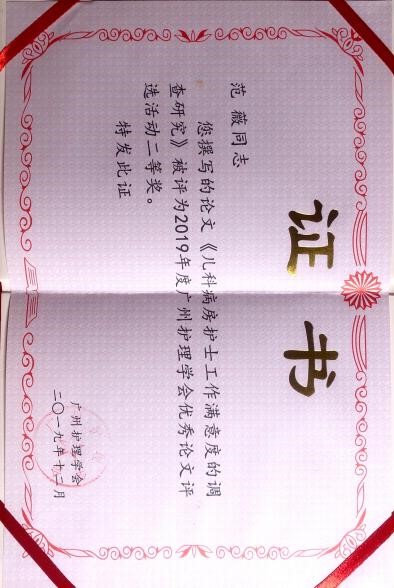 证书
范薇同志
您撰写的论文《儿科病房护士工作满意度的调
查研究》被评为2019年度广州护理学会优秀论文评
选活动二等奖。
特发此证
广州护理学会
二〇一九年十二月